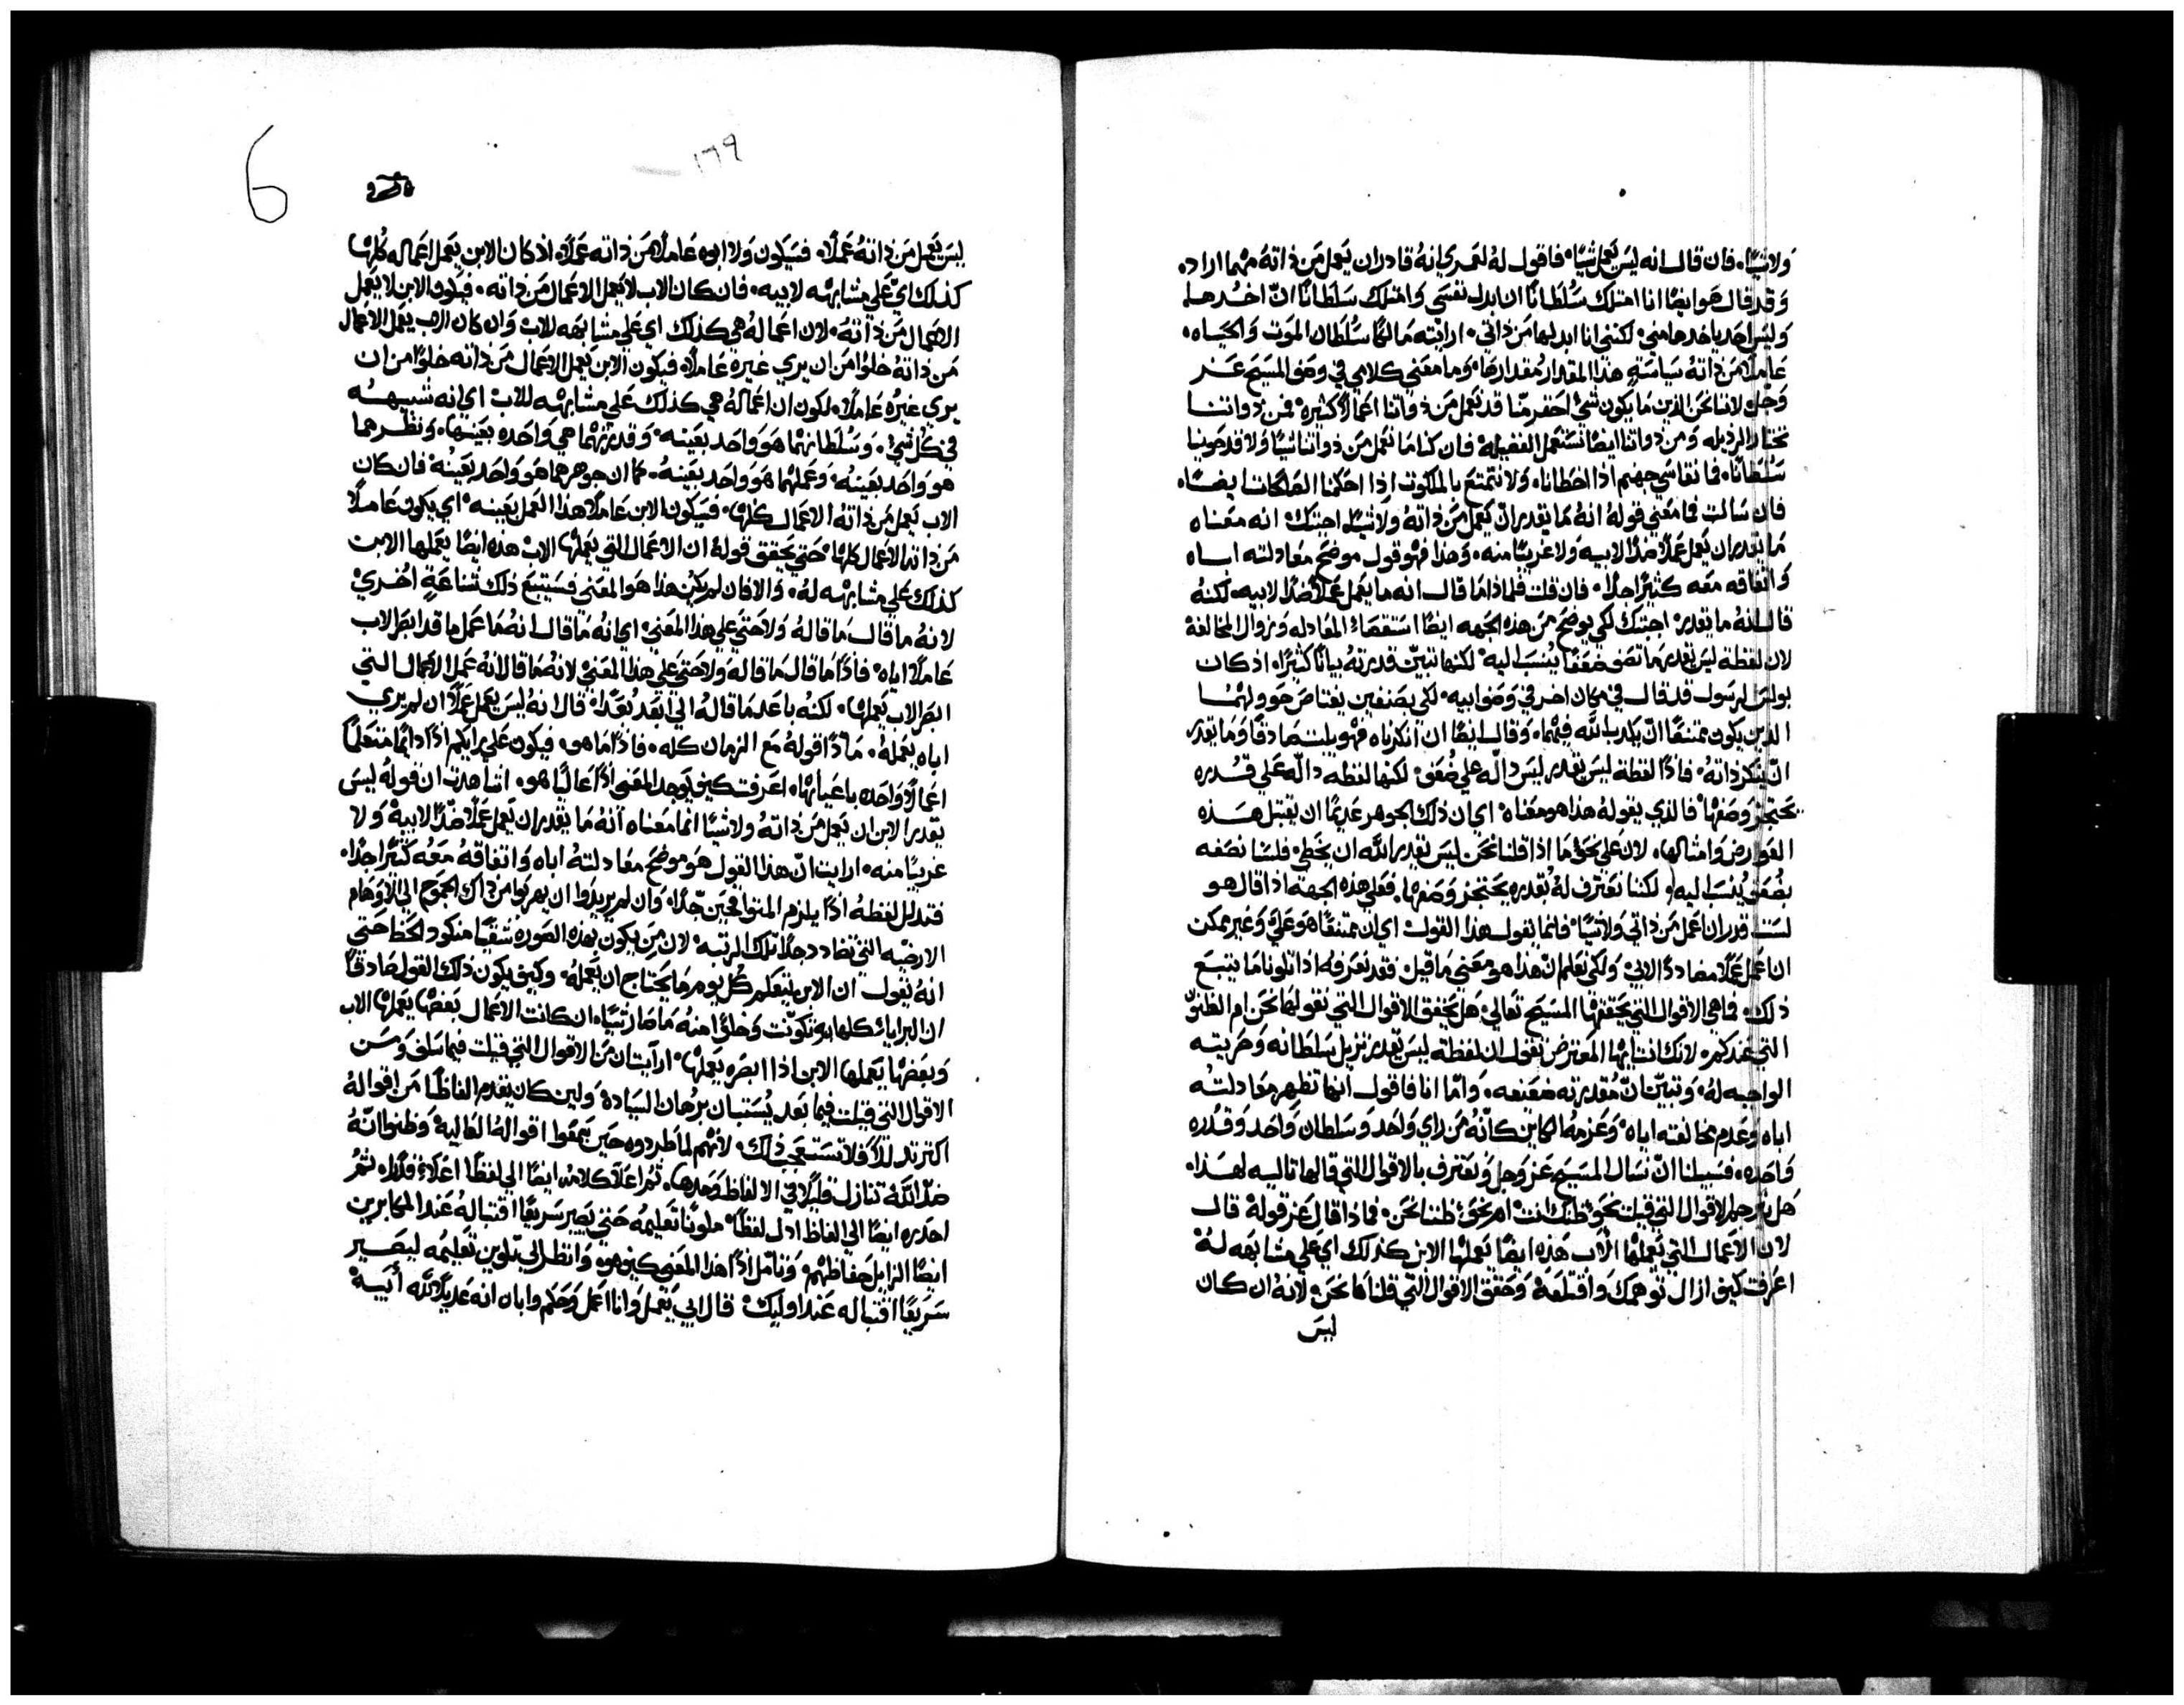 ولا شيًا. فان قال انه ليس يعمل شيًا. فاقول له لعمري انه قادر ان يعمل من ذاته مهما اراده
وقد قال هو ايضًا انا امتلك سُلطانًا ان ابدل نفسي وامتلك سلطانًا انّ اخدها
وليس احد ياخدها مني. لكنني انا ابدلها من ذاتي. ارايته مالكًا سُلطان الموت والحياه.
عاملًا من ذاته سياسةٍ هذا المقدار مُقدارها. وما معني كلامي في وصف المسيح عز
وجل لاننا نحن الذين ما يكون شي احقر منّا قد نعمل من ذواتنا اعمالًا كثيره. فمن ذواتنا
نختار الرذيله ومن ذواتنا ايضًا نستعمل الفضيله. فان كنا ما نعمل من ذواتنا شيًا ولا قد حوينا
سُلطانًا. فما نقاسي جهنم اذا اخطانا. ولا نتمتع بالملكوت اذا احكمنا الصالحات ايضًا.
فان سالت فما معني قوله انه ما يقدر انّ يعمل من ذاته ولا شيًا. اجبتك انه معناه
ما يقدر ان يعمل عملًا ضدًا لابيه ولا غريبًا منه. وهذا فهو قول موضح معادلته اباه
واتفاقه معه كثيرًا جدًا. فان قلت فلماذا ما قال انه ما يعمل عملًا ضدًا لابيه. لكنه
قال انه ما يقدر. اجبتك لكي يوضح من هذه الجهه ايضًا استقصاء المعادله وزوال المخالفة
لان لفظة ليس يقدر ما تصف ضعفًا يُنسب اليه. لكنها تبيّن قدرته بيانًا كثيرًا. اذ كان
بولس الرسول قد قال في مكان اخر في وصف ابيه. لكي بصنفين يعتاص حوولهما
الذين يكون ممتنعًا انّ يكدب الله فيهما. وقال ايضًا ان انكرناه فهو يلبث صادقًا وما يقدر
انّ ينكر ذاته. فاذًا لفظة ليس يقدر ليس دالّه علي ضُعف. لكنها لفظه دالّه علي قدره
يحتجز وصفها. فالذي يقوله هذا هو معناه. اي ان ذلك الجوهر عديمًا ان يقتبل هذه
العوارض وامثالها. لان علي نحو ما اذا قلنا نحن ليس يقدر الله ان يخطي. فلسنا نصفه
بضُعفٍ يُنسب اليه. لكننا نعترف له بقدره يحتجز وصفها. فعلي هذه الجهة اذا قال هو
لست اقدر ان اعمل من ذاتي ولا شيًا. فانما يقول هذا القول اي ان ممتنعًا هو عليّ وغير ممكن
ان اعمل عملًا مضاددًا لابي. ولكي نعلم انّ هذا هو معني ما قيل. فقد نعرفه اذا تلونا ما يتبع
ذلك. فما هي الاقوال التي يحققها المسيح تعالي هل يحقق الاقوال التي نقولها نحن ام الظنون
التي عندكم. لانك انت ايها المعترض تقول ان لفظة ليس يقدر تزيل سلطانه وحريته
الواجبه له. وتبيّن انّ مُقدرته ضعيفه. وامّا انا فاقول انها تظهر معادلته
اباه وعدم مخالفته اياه. وعزمه الكاين كانّه من راي واحد وسلطان واحد وقدره
واحده. فسبيلنا انّ نسال المسيح عز وجل ونعترف بالاقوال التي قالها تاليه لهذا.
هل يترجم الاقوال التي قيلت نحو ظنك انت ام نحو ظننا نحن. فماذا قال عز قوله قال
لان الاعمال التي يعملها الاب هذه ايضًا يعملها الابن كذلك اي علي مشابهه له
اعرفت كيف ازال توهمك واقتلعه وحقق الاقوال التي قلناها نحن. لانه ان كان
ليس
١٦٩
6
ليس يعمل من ذاته عملًا. فسيكون ولا ابوه عاملًا من ذاته عملًا. اذ كان الابن يعمل اعماله كُلها
كذلك ايّ علي مشابهه لابيه. فان كان الاب لا يعمل الاعمال من ذاته. فيكون الابن لا يعمل
الاعمال من ذاته. لان اعماله هي كذلك اي علي مشابهه للاب وان كان الاب يعمل الاعمال
من ذاته خلوًا من ان يري غيره عاملًا. فيكون الابن يعمل الاعمال من ذاته خلوًا من ان
يري غيره عاملًا. لكون ان اعماله هي كذلك علي مشابهه للاب اي انه شبيهه
في كل شي. وسُلطانهما هو واحد بعينه. وقدرتهما هي واحده بعينها. ونظرهما
هو واحد بعينه. وعملهما هو واحد بعينه. كما ان جوهرهما هو واحد بعينه. فان كان
الاب يعمل من ذاته الاعمال كلها. فسيكون الابن عاملًا هذا العمل بعينه. اي يكون عاملًا
من ذاته الاعمال كلها. حتي يحقق قوله ان الاعمال التي يعملها الاب هذه ايضًا يعملها الابن
كذلك علي مشابهه له. والا فان لم يكن هذا هو المعني فسيتبع ذلك شناعةٍ اُخري
لانه ما قال ما قاله ولا حتي علي هذا المعني. اي انه ما قال انه ما عمل ما قد ابصر الاب
عاملًا اياه. فاذًا ما قال ما قاله ولا حتي علي هذا المعني لانه ما قال انه عمل الاعمال التي
ابصر الاب يعملها. لكنه باعد ما قاله الي ابعد بُعدًا. قال انه ليس يعمل عملًا ان لم يري
اباه يعمله. مادًا قوله مع الزمان كله. فاذًا ما هو فيكون علي رايكم اذًا دايمًا متعلمًا
اعمالًا واحده باعيانها. اعرفت كيف يوجد المعني اذًا عاليًا هو. اشاهدت ان قوله ليس
يقدر الابن ان يعمل من ذاته ولا شيًا انما معناه انه ما يقدر ان يعمل عملًا ضدّ الابيه ولا
غريبًا منه. ارايت انّ هذا القول هو موضح معادلته اباه واتفاقه معه كثيرًا جدًا.
فتدلل لفظه اذًا يلزم المتواقحين جدًا. وان لم يريدوا ان يهربوا من ذاك الجموح الي الاوهام
الارضيه التي تضادد جدًا تلك المرتبه. لان من يكون بهذه الصوره شقيًا منكود الحظ حتي
انه يقول ان الابن يتعلم كل يوم ما يحتاج ان يعمله. وكيف يكون ذلك القول صادقًا
ان البرايا كلها به تكوّنت وخلوًا منه ما صار شيًا. ان كانت الاعمال بعضها يعملها الاب
وبعضها يعملها الابن اذا ابصره يعملها. ارآيت ان من الاقوال التي قيلت فيما سلف ومن
الاقوال التي قيلت فيما بعد يُستبان برهان السيادة. ولين كان يقدم الفاظًا من اقواله
اكتر تدللًا فلا تستعجب ذلك. لانهم لما طردوه حين سمعوا اقواله العاليه وظنوا انّه
ضدّ الله تنازل قليلًا في الالفاظ وحدها. ثم اعلا كلامه ايضًا الي لفظًا اعلاءً قدرًا. ثم
احدره ايضًا الي الفاظ ادل لفظًا. ملونًا تعليمه حتي يصير سريعًا اقتباله عند المكابرين
ايضًا الزايل حفاظهم. وتامّل اذًا هذا المعني كيف هو. وانظر الي تلوين تعليمُه ليصير
سريعًا اقتباله عند اوليك. قال ابي يعمل وانا اعمل وحكم واباه انه عديلًا لله ابيه